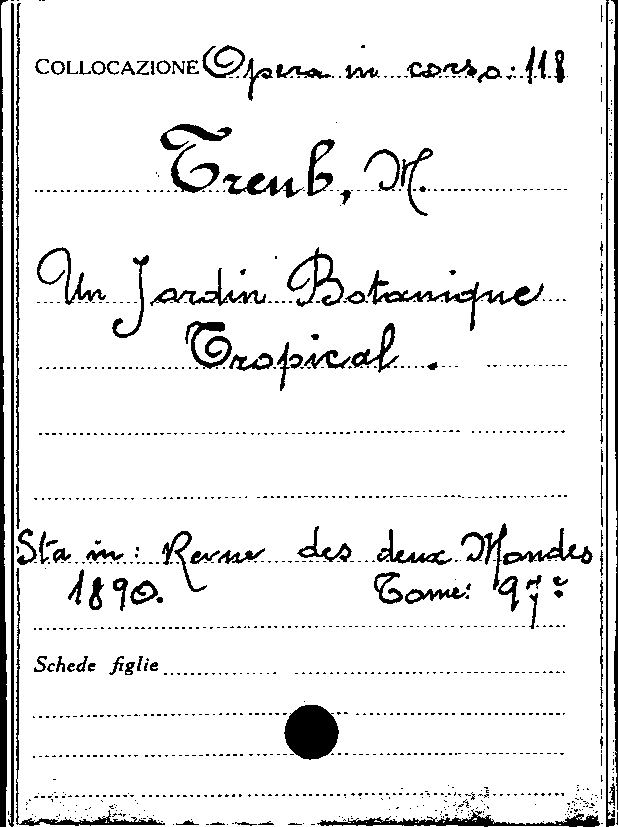 COLLOCAZIONE Opera in corso: 118
Treub, M.
Un Jardin Botanique
Tropical.
Sta in: Revue des deux Mondes
1890. Tome: 97me
Schede figlie